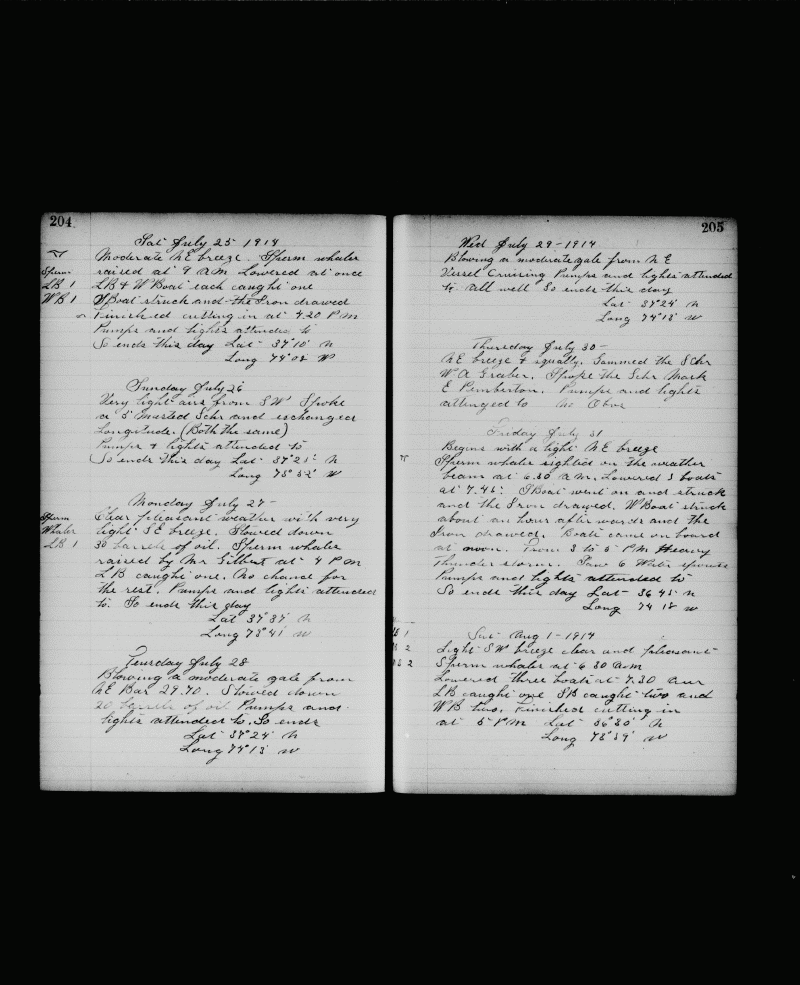 204
Sat July 25 1914
Moderate NE breeze. Sperm whales
Sperm raised at 9 AM Lowered at once
LB 1 LB & W Boat each caught one
WB 1 Boat struck and the Iron drawed
Finished cutting in at 4.20 PM
Pumps and lights attended to
So ends this day Lat 37° 10' N
Long 74° 02' W
Sunday July 26
Very light airs from SW Spoke
a 5 Masted Schr and exchanged
Longitude. (Both the same)
Pumps & lights attended to
So ends this day Lat 37° 21' N
Long 73° 52' W
Monday July 27
Sperm Clear pleasant weather with very
Whales light SE breeze. Stowed down
LB 1 30 barrels of oil. Sperm whales
raised by Mr Gilbert at 4 PM
LB caught one. No chance for
the rest. Pumps and lights attended
to. So ends this day
Lat 37° 37' N
Long 73° 41' W
Teusday July 28
Blowing a moderate gale from
NE Bar 29.70. Stowed down
20 barrels of oil Pumps and
lights attended to. So ends
Lat 37° 24' N
Long 74° 13' W
205
Wed July 29-1914
Blowing a moderate gale from NE
Vessel Cruising Pumps and lights attended
to all well So ends this day
Lat 37° 24' N
Long 74° 13' W
Thursday July 30-
NE breeze & squally. Gammed the Schr
W A Graber. Spoke the Schr Mark
E Pemberton. Pumps and lights
attended to No Obs
Friday July 31
Begins with a light NE breeze
Sperm whales sighted on the weather
beam at 6.30 a.m. Lowered 3 boats
at 7.45. Boat went on and struck
and the Iron drawed. W Boat struck
about an hour afterwards and the
Iron drawed. Boats came on board
at noon. From 3 to 5 PM Heavy
thunder storm. Saw 6 Water spouts
Pumps and lights attended to
So ends this day Lat 36 45 N
Long 74 18 W
B 1 Sat Aug 1-1914
B 2 Light SW breeze clear and pleasant
B 2 Sperm whales at 6 30 am
Lowered three boats at 7.30 am
LB caught one SB caught two and
WB two. Finished cutting in
at 5 PM Lat 36° 30' N
Long 73° 39' W